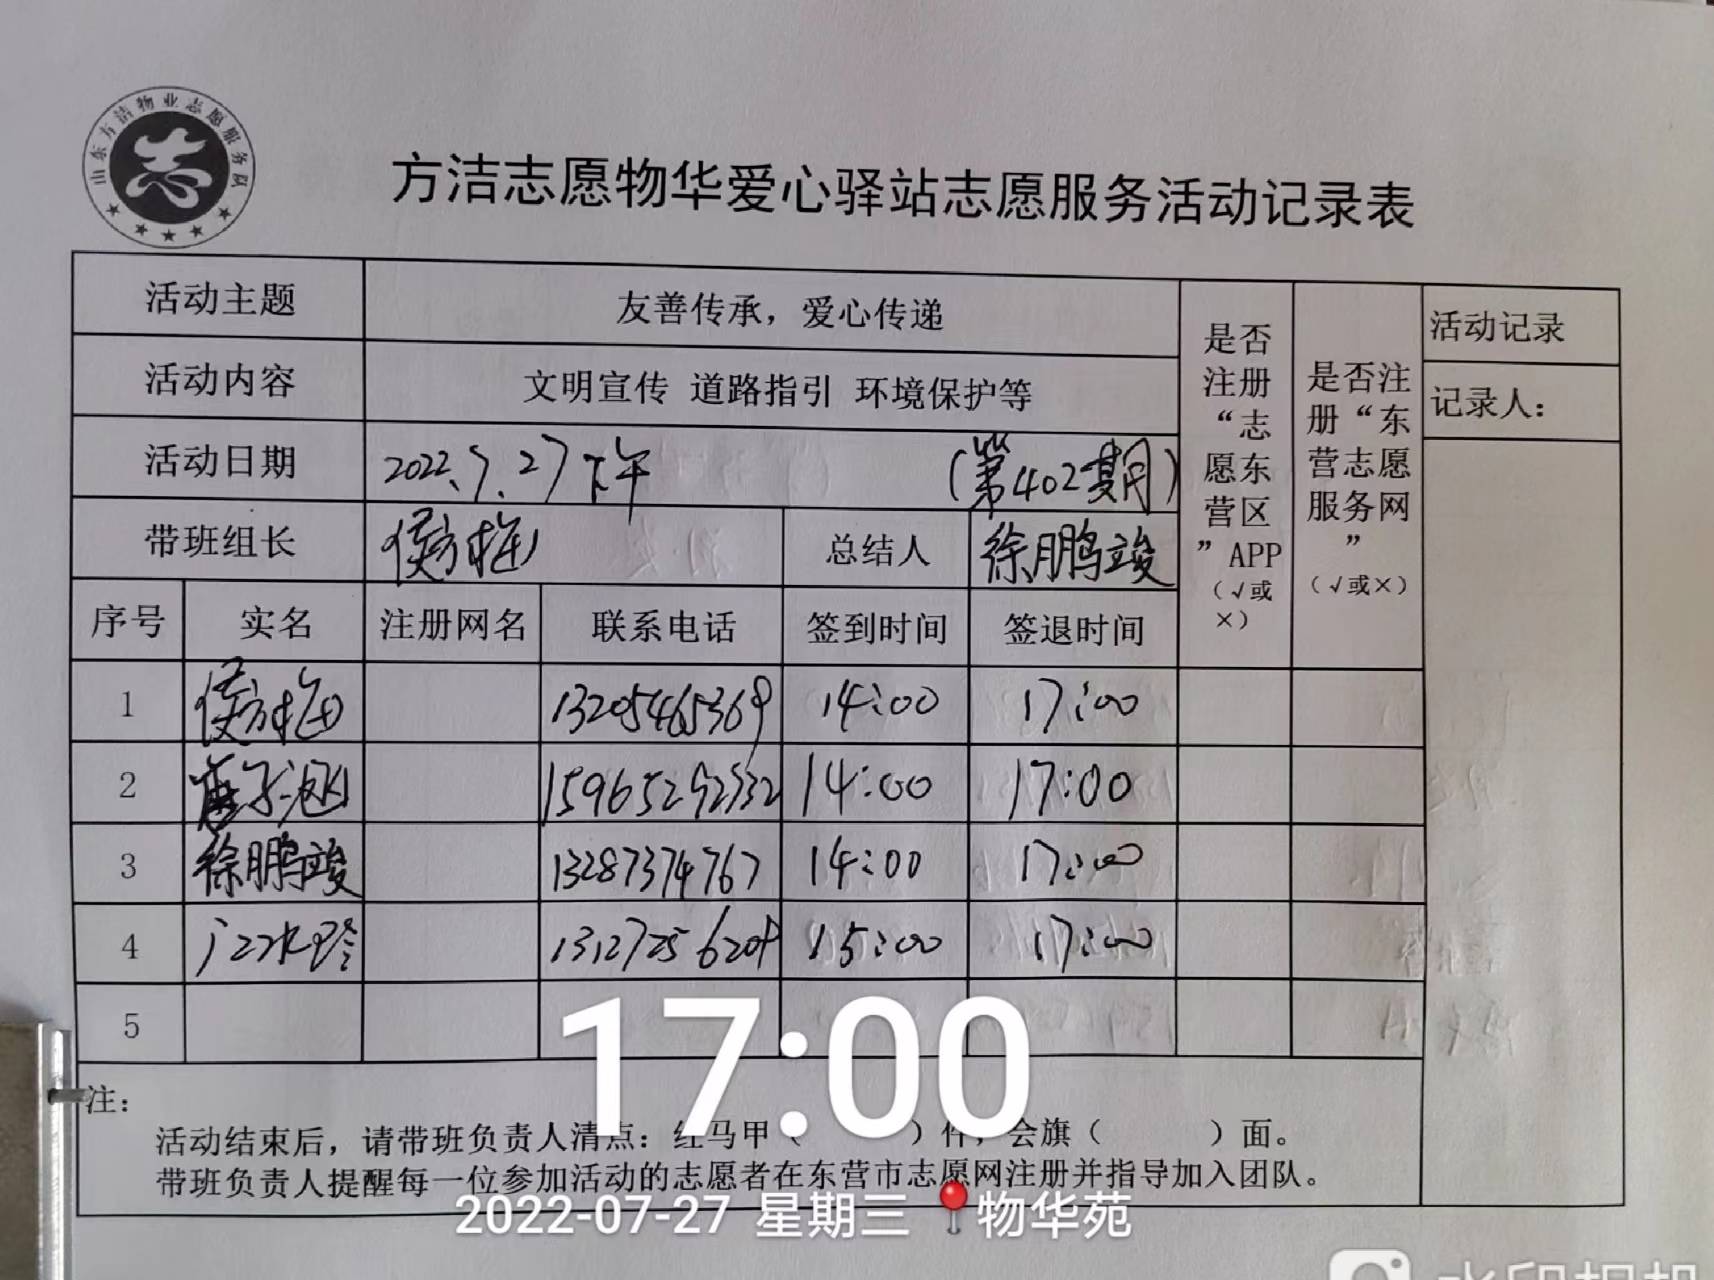 山东方洁物业志愿服务队
志
方洁志愿物华爱心驿站志愿服务活动记录表
活动主题 友善传承，爱心传递
活动内容 文明宣传 道路指引 环境保护等
活动日期 2022.7.27下午 （第402期）
带班组长 侯方梅 总结人 徐鹏竣
是否注册“志愿东营区”APP（√或×）
是否注册“东营志愿服务网”（√或×）
活动记录
记录人：
序号 实名 注册网名 联系电话 签到时间 签退时间
1 侯方梅 13205465369 14:00 17:00
2 15965292332 14:00 17:00
3 徐鹏竣 13287374767 14:00 17:00
4 13127256209 15:00 17:00
5
17:00
注：
活动结束后，请带班负责人清点：红马甲（ ）件，会旗（ ）面。
带班负责人提醒每一位参加活动的志愿者在东营市志愿网注册并指导加入团队。
2022-07-27 星期三 物华苑
水印相机